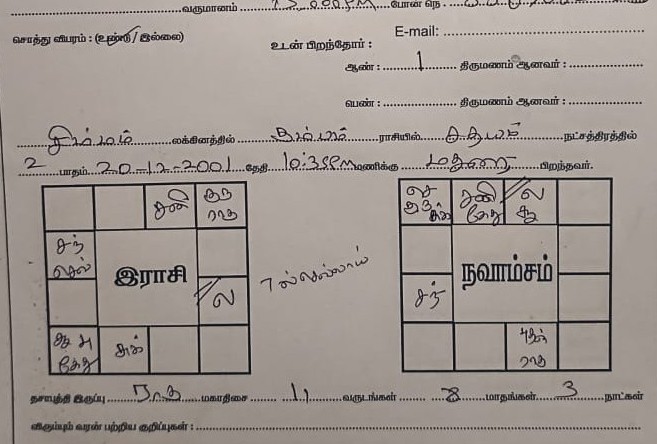 வருமானம் போன் நெ.
சொத்து விபரம் : (உண்டு / இல்லை) உடன் பிறந்தோர் : E-mail:
ஆண் : 1 திருமணம் ஆனவர் :
பெண் : திருமணம் ஆனவர் :
சிம்மம் லக்கினத்தில் கும்பம் ராசியில் சதயம் நட்சத்திரத்தில்
2 பாதம் 20-12-2001 தேதி 10:35PM மணிக்கு மதுரை பிறந்தவர்.
சனி குரு ராகு
சந் செவ்
இராசி
ல
கேது சுக்
7ல் செவ்வாய்
சனி கேது ல
நவாம்சம்
சந்
புதன் ராகு
தசாபுத்தி இருப்பு ராகு மகாதிசை 11 வருடங்கள் 8 மாதங்கள் 3 நாட்கள்
விரும்பும் வரன் பற்றிய குறிப்புகள் :